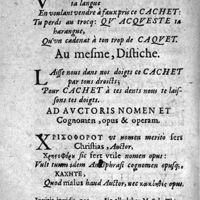 ta langue
En voulant vendre à faux pris ce CACHET:
Tu perds au trocq: QV' ACQVESTE ta
harangue,
Qu'vn cadenat à ton trop de CAQVET.
Au mesme, Distiche.
LAisse nous dans nos doigts ce CACHET
par tous droicts;
Pour CACHET à tes dents nous te laissons
tes doigts.
AD AVCTORIS NOMEN ET
Cognomen, opus & operam.
ΧΡΙΣΟΦΟΡΟΤ vt nomen meritò fers
Christias, Auctor,
sic fers vtile nomen opus:
Vult tuum idem cognomen opusq́;
ΚΑΧΗΤΕ,
Quod malus haud Auctor, nec opus.